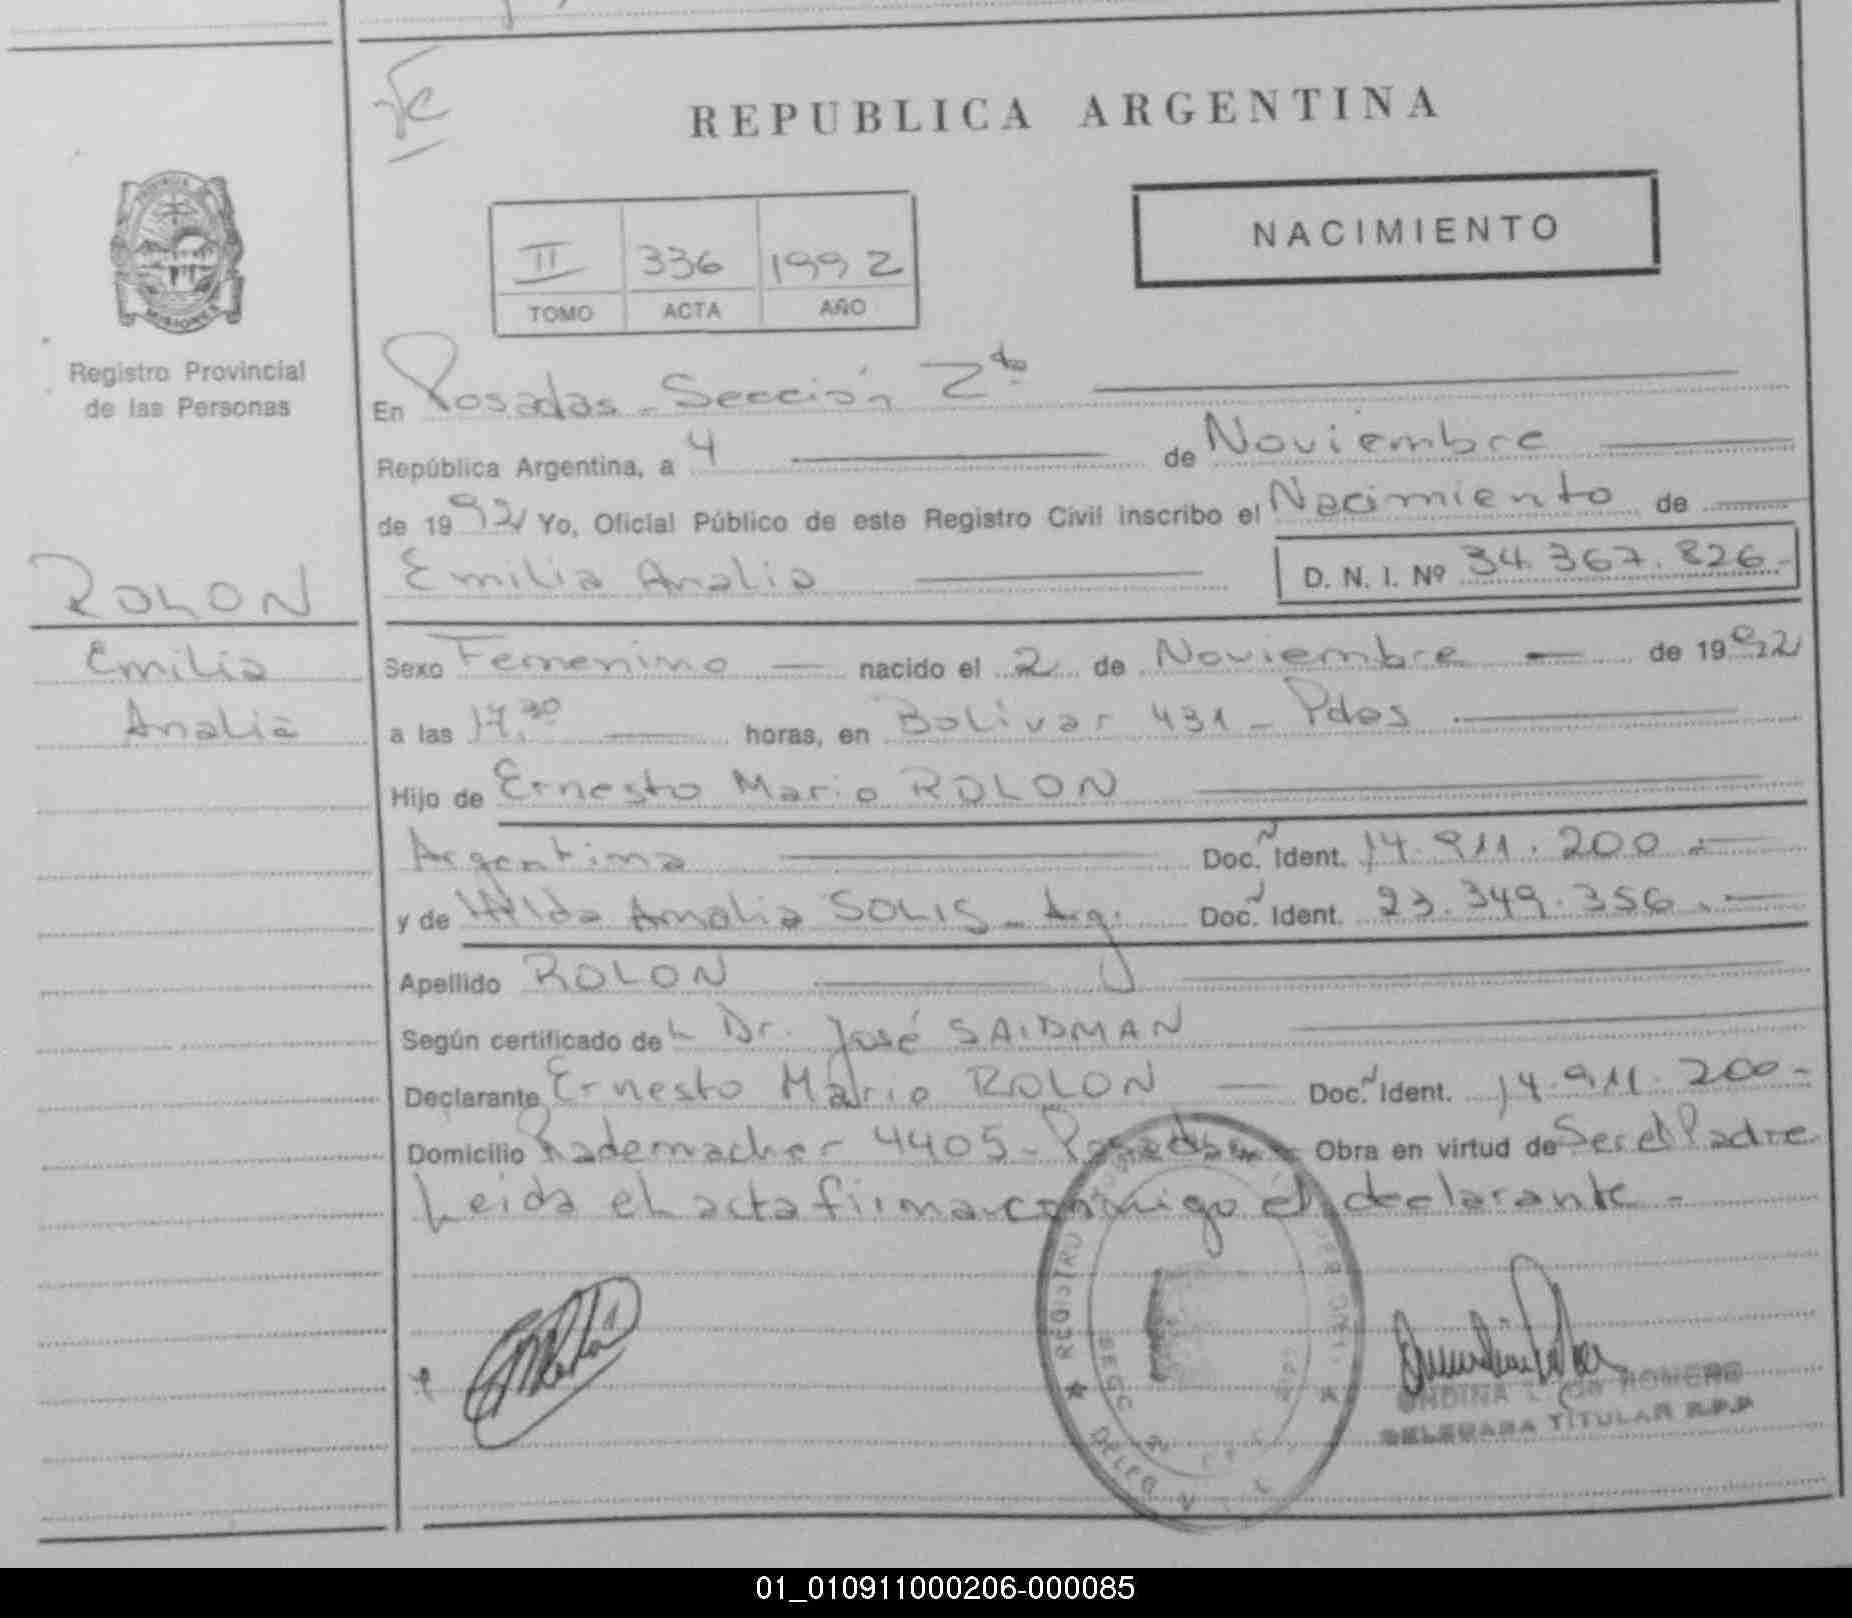 REPUBLICA ARGENTINA
NACIMIENTO
II 336 1992
TOMO ACTA AÑO
PROVINCIA
MISIONES
Registro Provincial
de las Personas
En Posadas - Sección 2da
República Argentina, a 4 de Noviembre
de 1992 Yo, Oficial Público de este Registro Civil inscribo el Nacimiento de
Emilia Analia D. N. I. Nº 34.367.826.-
ROLON
Emilia
Analia
Sexo Femenino nacido el 2 de Noviembre de 1992
a las 17.30 horas, en Bolivar 431 - Pdas
Hijo de Ernesto Mario ROLON
Argentina Doc. Ident. 14.911.200.-
y de Hilda Amalia SOLIS - Arg. Doc. Ident. 23.349.356.-
Apellido ROLON
Según certificado del Dr. José SAIDMAN
Declarante Ernesto Mario ROLON Doc. Ident. 14.911.200-
Domicilio Rademacher 4405 - Posadas Obra en virtud de Ser el Padre
Leida el acta firma conmigo el declarante -
REGISTRO
ONDINA L. de ROMERO
DELEGADA TITULAR R.P.P
01_010911000206-000085